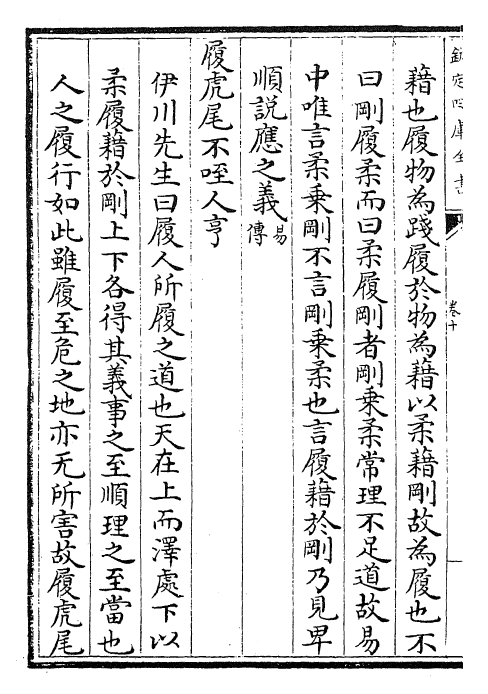 欽定四庫全書
卷十
藉也履物為踐履於物為藉以柔藉剛故為履也不
曰剛履柔而曰柔履剛者剛乗柔常理不足道故易
中唯言柔乗剛不言剛乗柔也言履藉於剛乃見卑
順説應之義易傳
履虎尾不咥人亨
伊川先生曰履人所履之道也天在上而澤處下以
柔履藉於剛上下各得其義事之至順理之至當也
人之履行如此雖履至危之地亦无所害故履虎尾